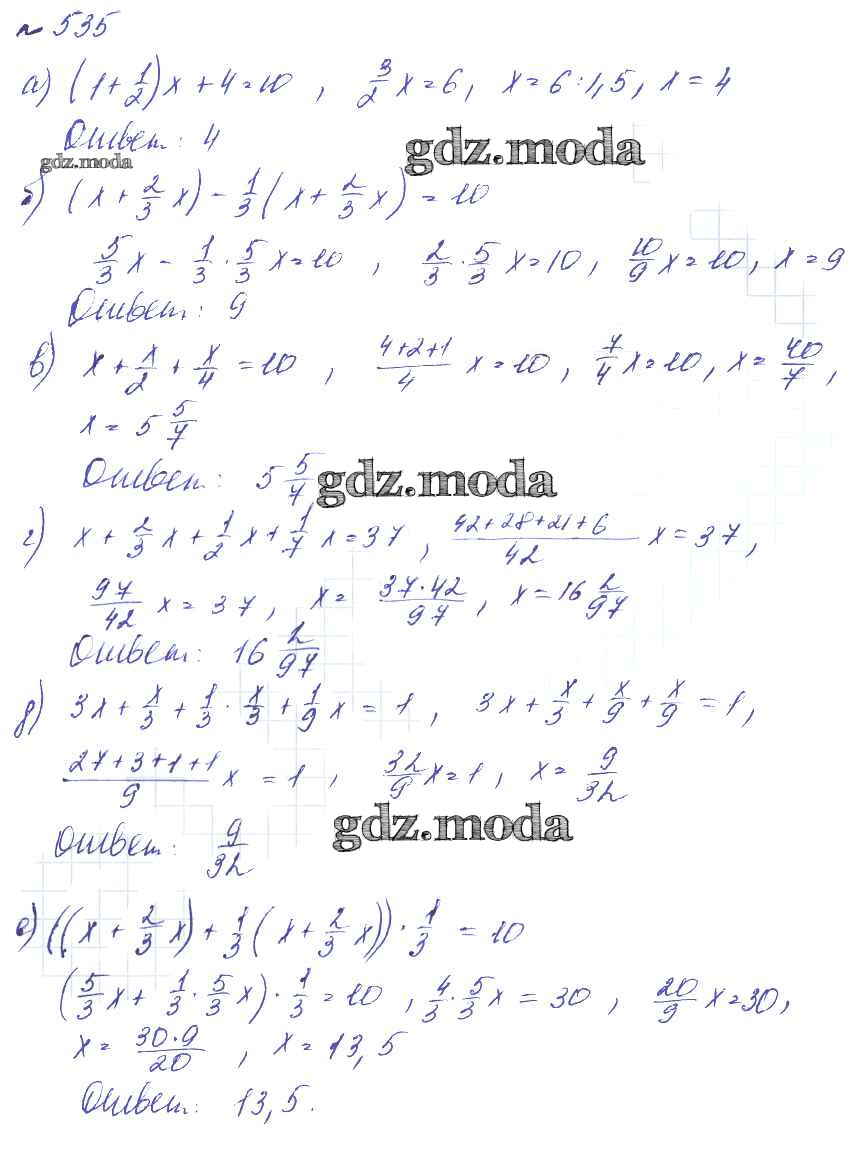 № 535
а) (1+1/2)x+4=10, 3/2 x=6, x=6:1,5, x=4
Ответ: 4
gdz.moda
gdz.moda
б) (x+2/3 x)-1/3(x+2/3 x)=10
5/3 x-1/3·5/3 x=10, 2/3·5/3 x=10, 10/9 x=10, x=9
Ответ: 9
в) x+x/2+x/4=10, (4+2+1)/4 x=10, 7/4 x=10, x=40/7,
x=5 5/7
Ответ: 5 5/7
gdz.moda
г) x+2/3 x+1/2 x+1/7 x=37, (42+28+21+6)/42 x=37,
97/42 x=37, x=(37·42)/97, x=16 2/97
Ответ: 16 2/97
д) 3x+x/3+1/3·x/3+1/9 x=1, 3x+x/3+x/9+x/9=1,
(27+3+1+1)/9 x=1, 32/9 x=1, x=9/32
Ответ: 9/32
gdz.moda
е) ((x+2/3 x)+1/3(x+2/3 x))·1/3=10
(5/3 x+1/3·5/3 x)·1/3=10, 4/3·5/3 x=30, 20/9 x=30,
x=(30·9)/20, x=13,5
Ответ: 13,5.